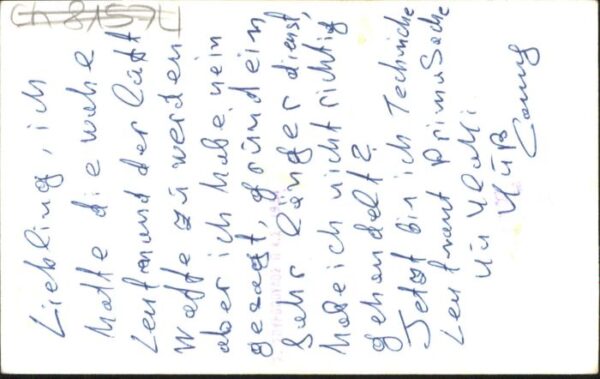 Ch 81594
Liebling, ich
hatte die wahe
Leutnand der Luft
Waffe zu werden
aber ich habe nein
gesagt, grund ein
Sehr länger dienst,
habe ich nicht richtig
gehandelt?
Jetzt bin ich Technische
Leutnant Prima Sache
Kuß